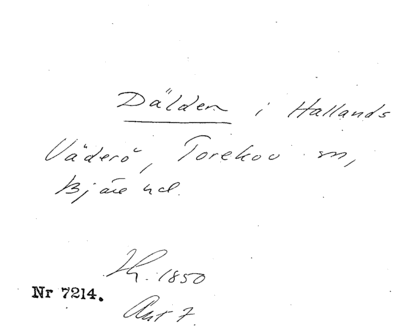 Dälden i Hallands
Väderö, Torekov sn,
Bjäre hd.
Jh. 1850
Nr 7214.
Ant 7